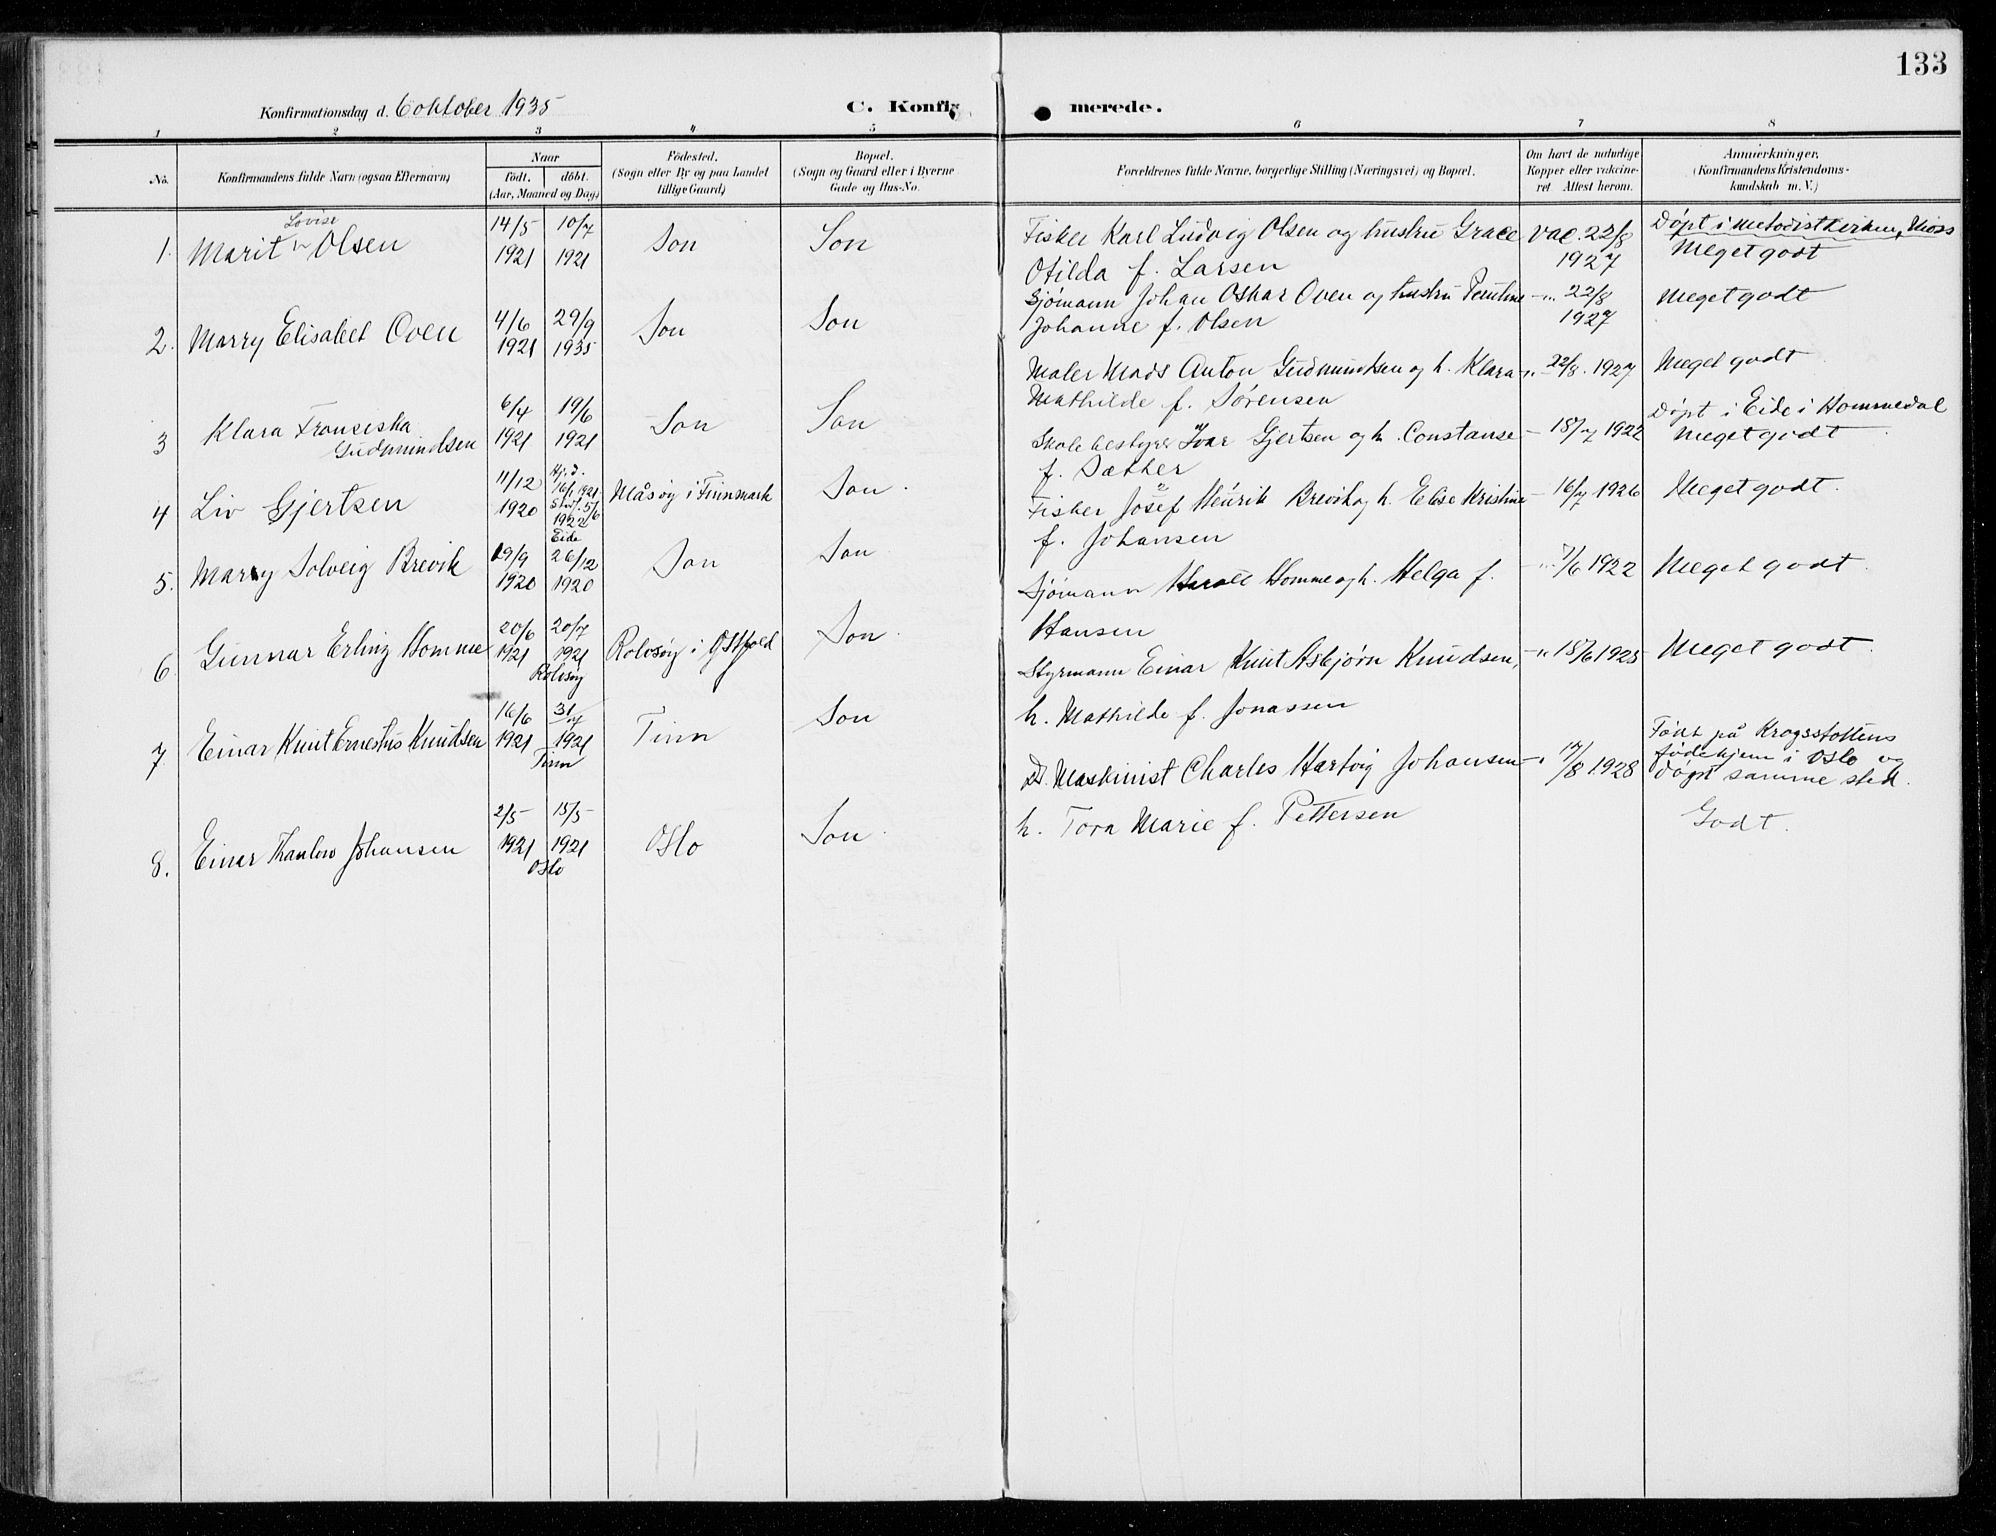 133
Konfirmationsdag d. 6 oktober 1935
C. Konfir merede.
1 2 3 4 5 6 7 8
No.
Konfirmandens fulde Navn (ogsaa Efternavn)
Naar
født. døbt.
(Aar, Maaned og Dag)
Fødested.
(Sogn eller By og paa Landet
tillige Gaard)
Bopæl.
(Sogn og Gaard eller i Byerne
Gade og Hus-No.
Forældrenes fulde Navne, borgerlige Stilling (Næringsvei) og Bopæl.
Om havt de naturlige
Kopper eller vakcine-
ret Attest herom.
Anmerkninger.
(Konfirmandens Kristendoms-
kundskab m. V.)
Lovise
1. Marit Olsen
14/5 1921
10/7 1921
Son
Son
Fisker Karl Ludvig Olsen og hustru Grace
Otilda f. Larsen
Vac. 22/8
1927
Døpt i Metodistkirken, Moss
Meget godt
2. Marry Elisabet Oven
4/6 1921
29/9 1935
Son
Son
Sjømann Johan Oskar Oven og hustru
Johanne f. Olsen
-"- 22/8
1927
Meget godt
3 Klara Fransiska
Gudmundsen
6/4 1921
19/6 1921
Son
Son
Maler Mads Anton Gudmundsen og h. Klara
Mathilde f. Sørensen
-"- 22/8. 1927
Meget godt
4 Liv Gjertsen
11/12 1920
Hj. d.
16/1 1921
Stadf. 5/6
1922
Eide
Måsøy i Finnmark
Son
Skolebestyrer Ivar Gjertsen og h. Constanse
f. Sæther
- 18/7 1922
Døpt i Eide i Hommedal
Meget godt
5. Marry Solveig Brevik
19/9 1920
26/12 1920
Son
Son
Fisker Josef Henrik Brevik og h. Elise Kristine
f. Johansen
- 16/7 1926
Meget godt.
6 Gunnar Erling Homme
20/6 1921
20/7 1921
Rolvsøy
Rolvsøy i Østfold
Son
Sjømann Harald Homme og h. Helga f.
Hansen
-"- 7/6 1922
Meget godt.
7 Einar Knut Ernestus Knudsen
16/6 1921
31/7 1921
Tinn
Tinn
Son
Styrmann Einar Knut Asbjørn Knudsen,
h. Mathilde f. Jonassen
-" 18/6 1925
Meget godt.
8. Einar Thaulow Johansen
2/5 1921
15/5 1921
Oslo
Oslo
Son
Maskinist Charles Hartvig Johansen
h. Tora Marie f. Pettersen
-" 17/8 1928
Født på Krogsstøttens
fødehjem i Oslo og
døpt samme sted.
Godt.